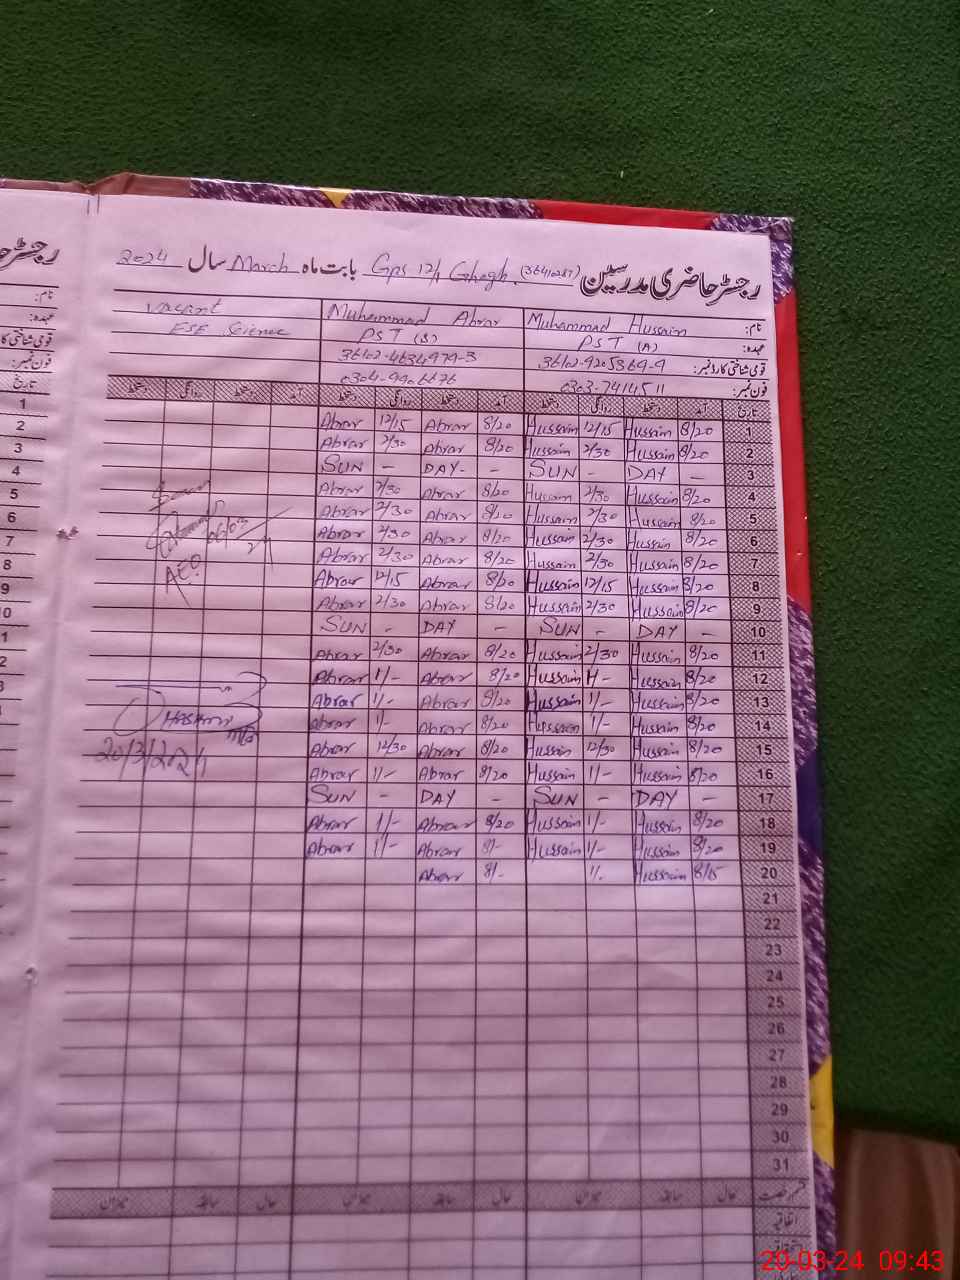 رجسٹر حاضری مدرسین Gps 12/1 Ghogh. (36410287) بابت ماہ March سال 2024
نام: Muhammad Hussain Muhammad Abrar Vacant
عہدہ: PST (A) PST (B) ESE Science
قومی شناختی کارڈ نمبر: 36102-9205369-9 36102-4634979-3
فون نمبر: 0303-7414511
تاریخ آمد دستخط روانگی دستخط آمد دستخط روانگی دستخط آمد دستخط روانگی دستخط
1 8/20 Hussain 12/15 Hussain 8/20 Abrar 12/15 Abrar
2 8/20 Hussain 2/30 Hussain 8/20 Abrar 2/30 Abrar
3 - DAY - SUN - DAY - SUN
4 8/20 Hussain 2/30 Hussain 8/20 Abrar 2/30 Abrar
5 8/20 Hussain 2/30 Hussain 8/20 Abrar 2/30 Abrar
6 8/20 Hussain 2/30 Hussain 8/20 Abrar 2/30 Abrar
7 8/20 Hussain 2/30 Hussain 8/20 Abrar 2/30 Abrar
8 8/20 Hussain 12/15 Hussain 8/20 Abrar 12/15 Abrar
9 8/20 Hussain 2/30 Hussain 8/20 Abrar 2/30 Abrar
10 - DAY - SUN - DAY - SUN
11 8/20 Hussain 2/30 Hussain 8/20 Abrar 2/30 Abrar
12 8/20 Hussain 1/- Hussain 8/20 Abrar 1/- Abrar
13 8/20 Hussain 1/- Hussain 8/20 Abrar 1/- Abrar
14 8/20 Hussain 1/- Hussain 8/20 Abrar 1/- Abrar
15 8/20 Hussain 12/30 Hussain 8/20 Abrar 12/30 Abrar
16 8/20 Hussain 1/- Hussain 8/20 Abrar 1/- Abrar
17 - DAY - SUN - DAY - SUN
18 8/20 Hussain 1/- Hussain 8/20 Abrar 1/- Abrar
19 8/20 Hussain 1/- Hussain 8/- Abrar 1/- Abrar
20 8/15 Hussain 1/- 8/- Abrar
21
22
23
24
25
26
27
28
29
30
31
AEO
20/3/2024
حال سابقہ میزان حال سابقہ میزان حال سابقہ میزان
اتفاقیہ
رجسٹر حا
نام:
عہدہ:
فون نمبر:
تاریخ
1
2
3
4
5
6
7
8
9
20-03-24 09:43